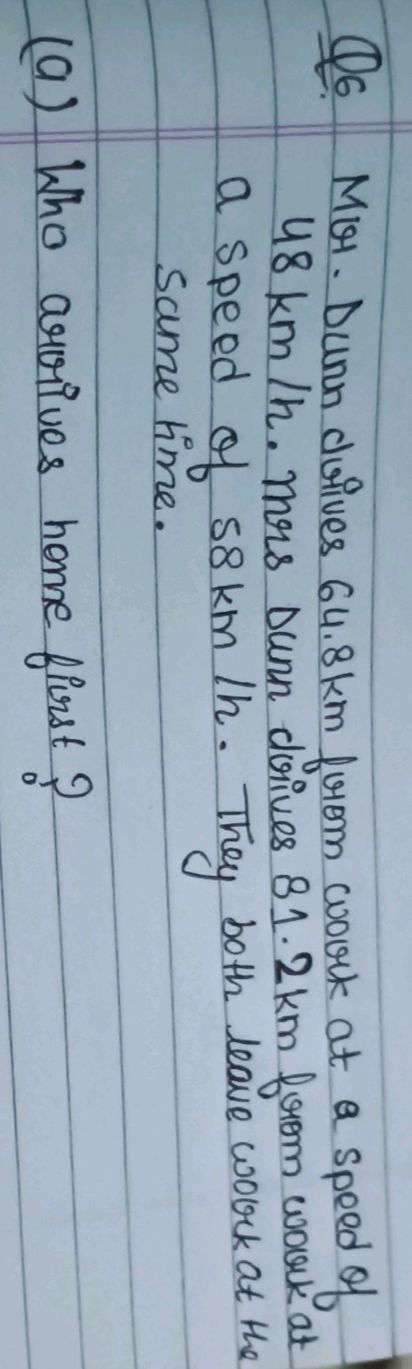 Q6. Mr. Dunn drives 64.8km from work at a speed of
48 km/h. Mrs Dunn drives 81.2km from work at
a speed of 58km/h. They both leave work at the
same time.
(a) Who arrives home first?